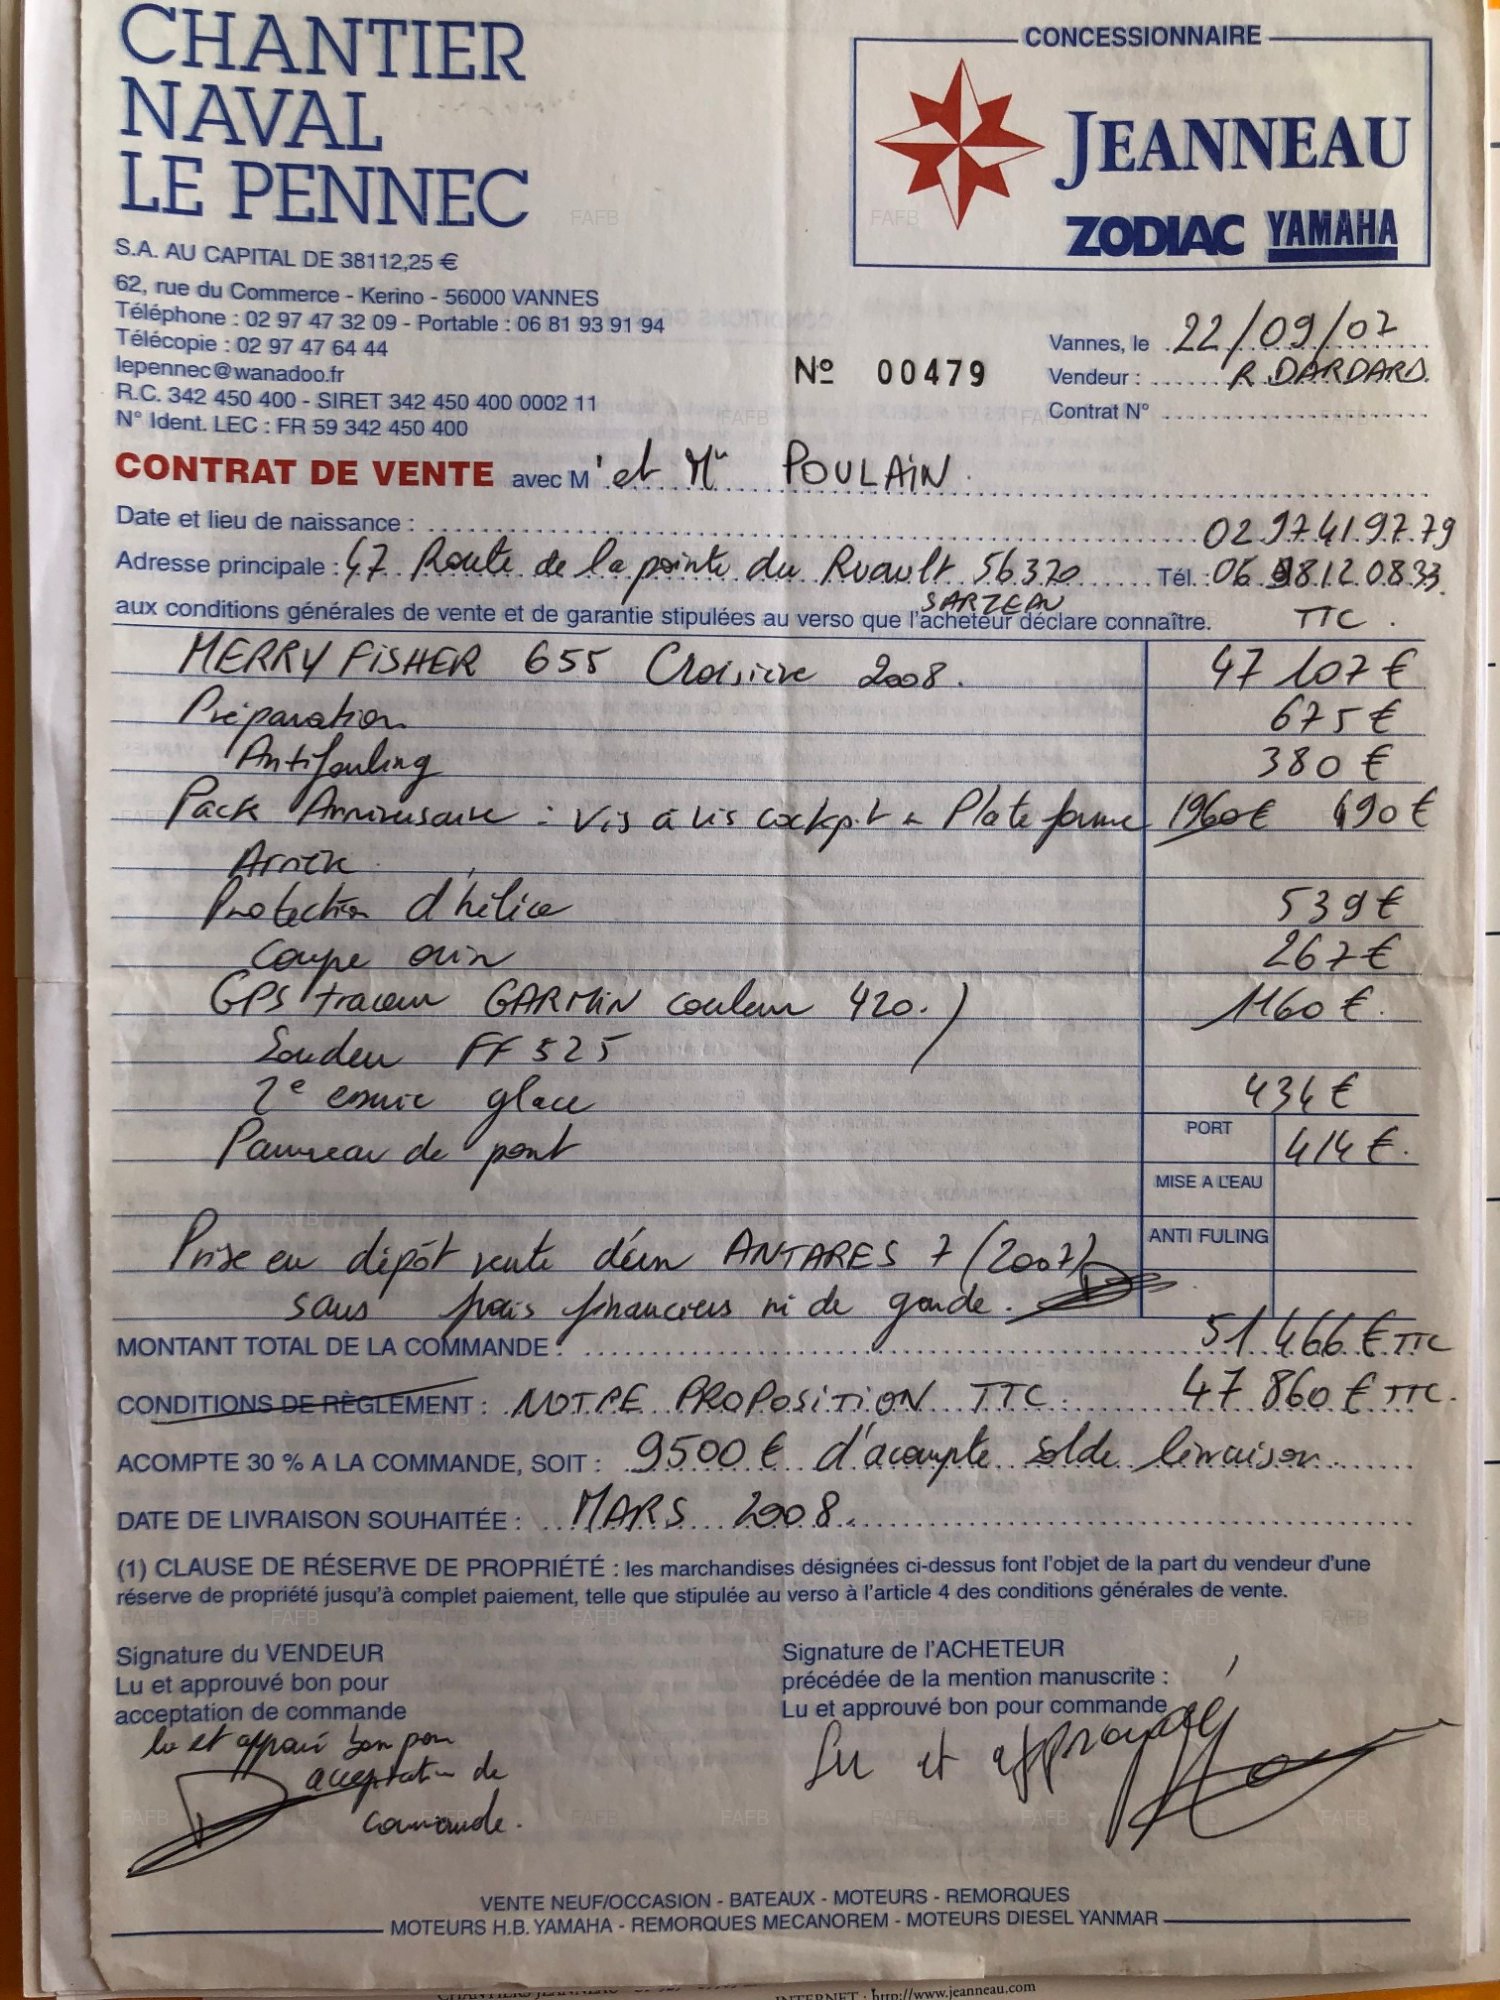 CHANTIER
NAVAL
LE PENNEC
S.A. AU CAPITAL DE 38112,25 €
62, rue du Commerce - Kerino - 56000 VANNES
Téléphone : 02 97 47 32 09 - Portable : 06 81 93 91 94
Télécopie : 02 97 47 64 44
lepennec@wanadoo.fr
R.C. 342 450 400 - SIRET 342 450 400 0002 11
N° Ident. LEC : FR 59 342 450 400
CONCESSIONNAIRE
JEANNEAU
ZODIAC YAMAHA
Nº 00479
Vannes, le 22/09/07
Vendeur : R. DARDARD.
Contrat N°
CONTRAT DE VENTE avec M' et Mme POULAIN
Date et lieu de naissance : 02.97.41.97.79
Adresse principale : 47 Route de la pointe du Ruault 56370 Tél. : 06.98.12.08.33.
SARZEAU
aux conditions générales de vente et de garantie stipulées au verso que l'acheteur déclare connaître. TTC.
MERRY FISHER 655 Croisière 2008. 47 107 €
Préparation 675 €
Antifouling 380 €
Pack Anniversaire : Vis à vis cockpit + Plateforme 1960€ 490 €
Arrière
Protection d'hélice 539 €
Coupe orin 267 €
GPS traceur GARMIN couleur 420. ) 1160 €.
Sondeur FF 525
2e essuie glace 434 €
Panneau de pont PORT 414 €.
MISE A L'EAU
ANTI FULING
Prise en dépôt vente d'un ANTARES 7 (2007)
sans frais financiers ni de garde.
MONTANT TOTAL DE LA COMMANDE : 51 466 € TTC
CONDITIONS DE RÈGLEMENT : NOTRE PROPOSITION TTC : 47 860 € TTC.
ACOMPTE 30 % A LA COMMANDE, SOIT : 9500 € d'acompte solde livraison
DATE DE LIVRAISON SOUHAITÉE : MARS 2008.
(1) CLAUSE DE RÉSERVE DE PROPRIÉTÉ : les marchandises désignées ci-dessus font l'objet de la part du vendeur d'une
réserve de propriété jusqu'à complet paiement, telle que stipulée au verso à l'article 4 des conditions générales de vente.
Signature du VENDEUR
Lu et approuvé bon pour
acceptation de commande
lu et approuvé bon pour
acceptation de
commande.
Signature de l'ACHETEUR
précédée de la mention manuscrite :
Lu et approuvé bon pour commande
Lu et approuvé
VENTE NEUF/OCCASION - BATEAUX - MOTEURS - REMORQUES
MOTEURS H.B. YAMAHA - REMORQUES MECANOREM - MOTEURS DIESEL YANMAR
INTERNET : http://www.jeanneau.com